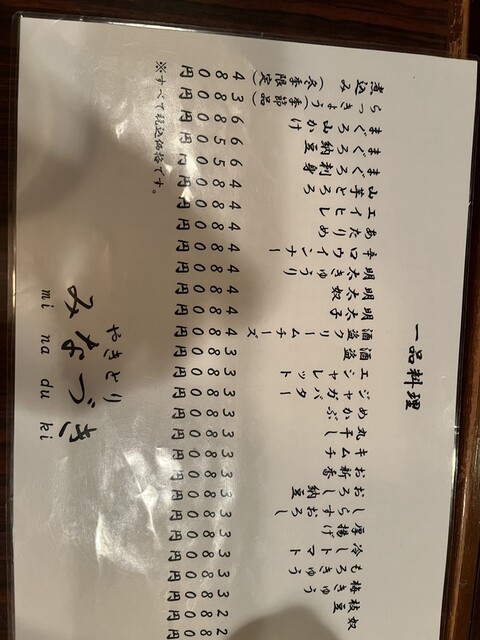 一品料理
奴 280円
枝豆 280円
梅きゅう 380円
もろきゅう 380円
冷しトマト 380円
厚揚げ 380円
しらすおろし 380円
おろし納豆 380円
お新香 380円
キムチ 380円
丸干し 380円
めかぶ 380円
ジャガバター 380円
エシャレット 380円
酒盗 380円
酒盗クリームチーズ 480円
明太子 480円
明太奴 480円
明太きゅうり 480円
辛口ウインナー 480円
あたりめ 480円
エイヒレ 480円
山芋とろろ 480円
まぐろ刺身 650円
まぐろ納豆 650円
まぐろ山かけ 680円
らっきょう(季節品) 380円
煮込み(冬季限定) 480円
※すべて税込価格です。
やきとり
みなづき
mi na du ki